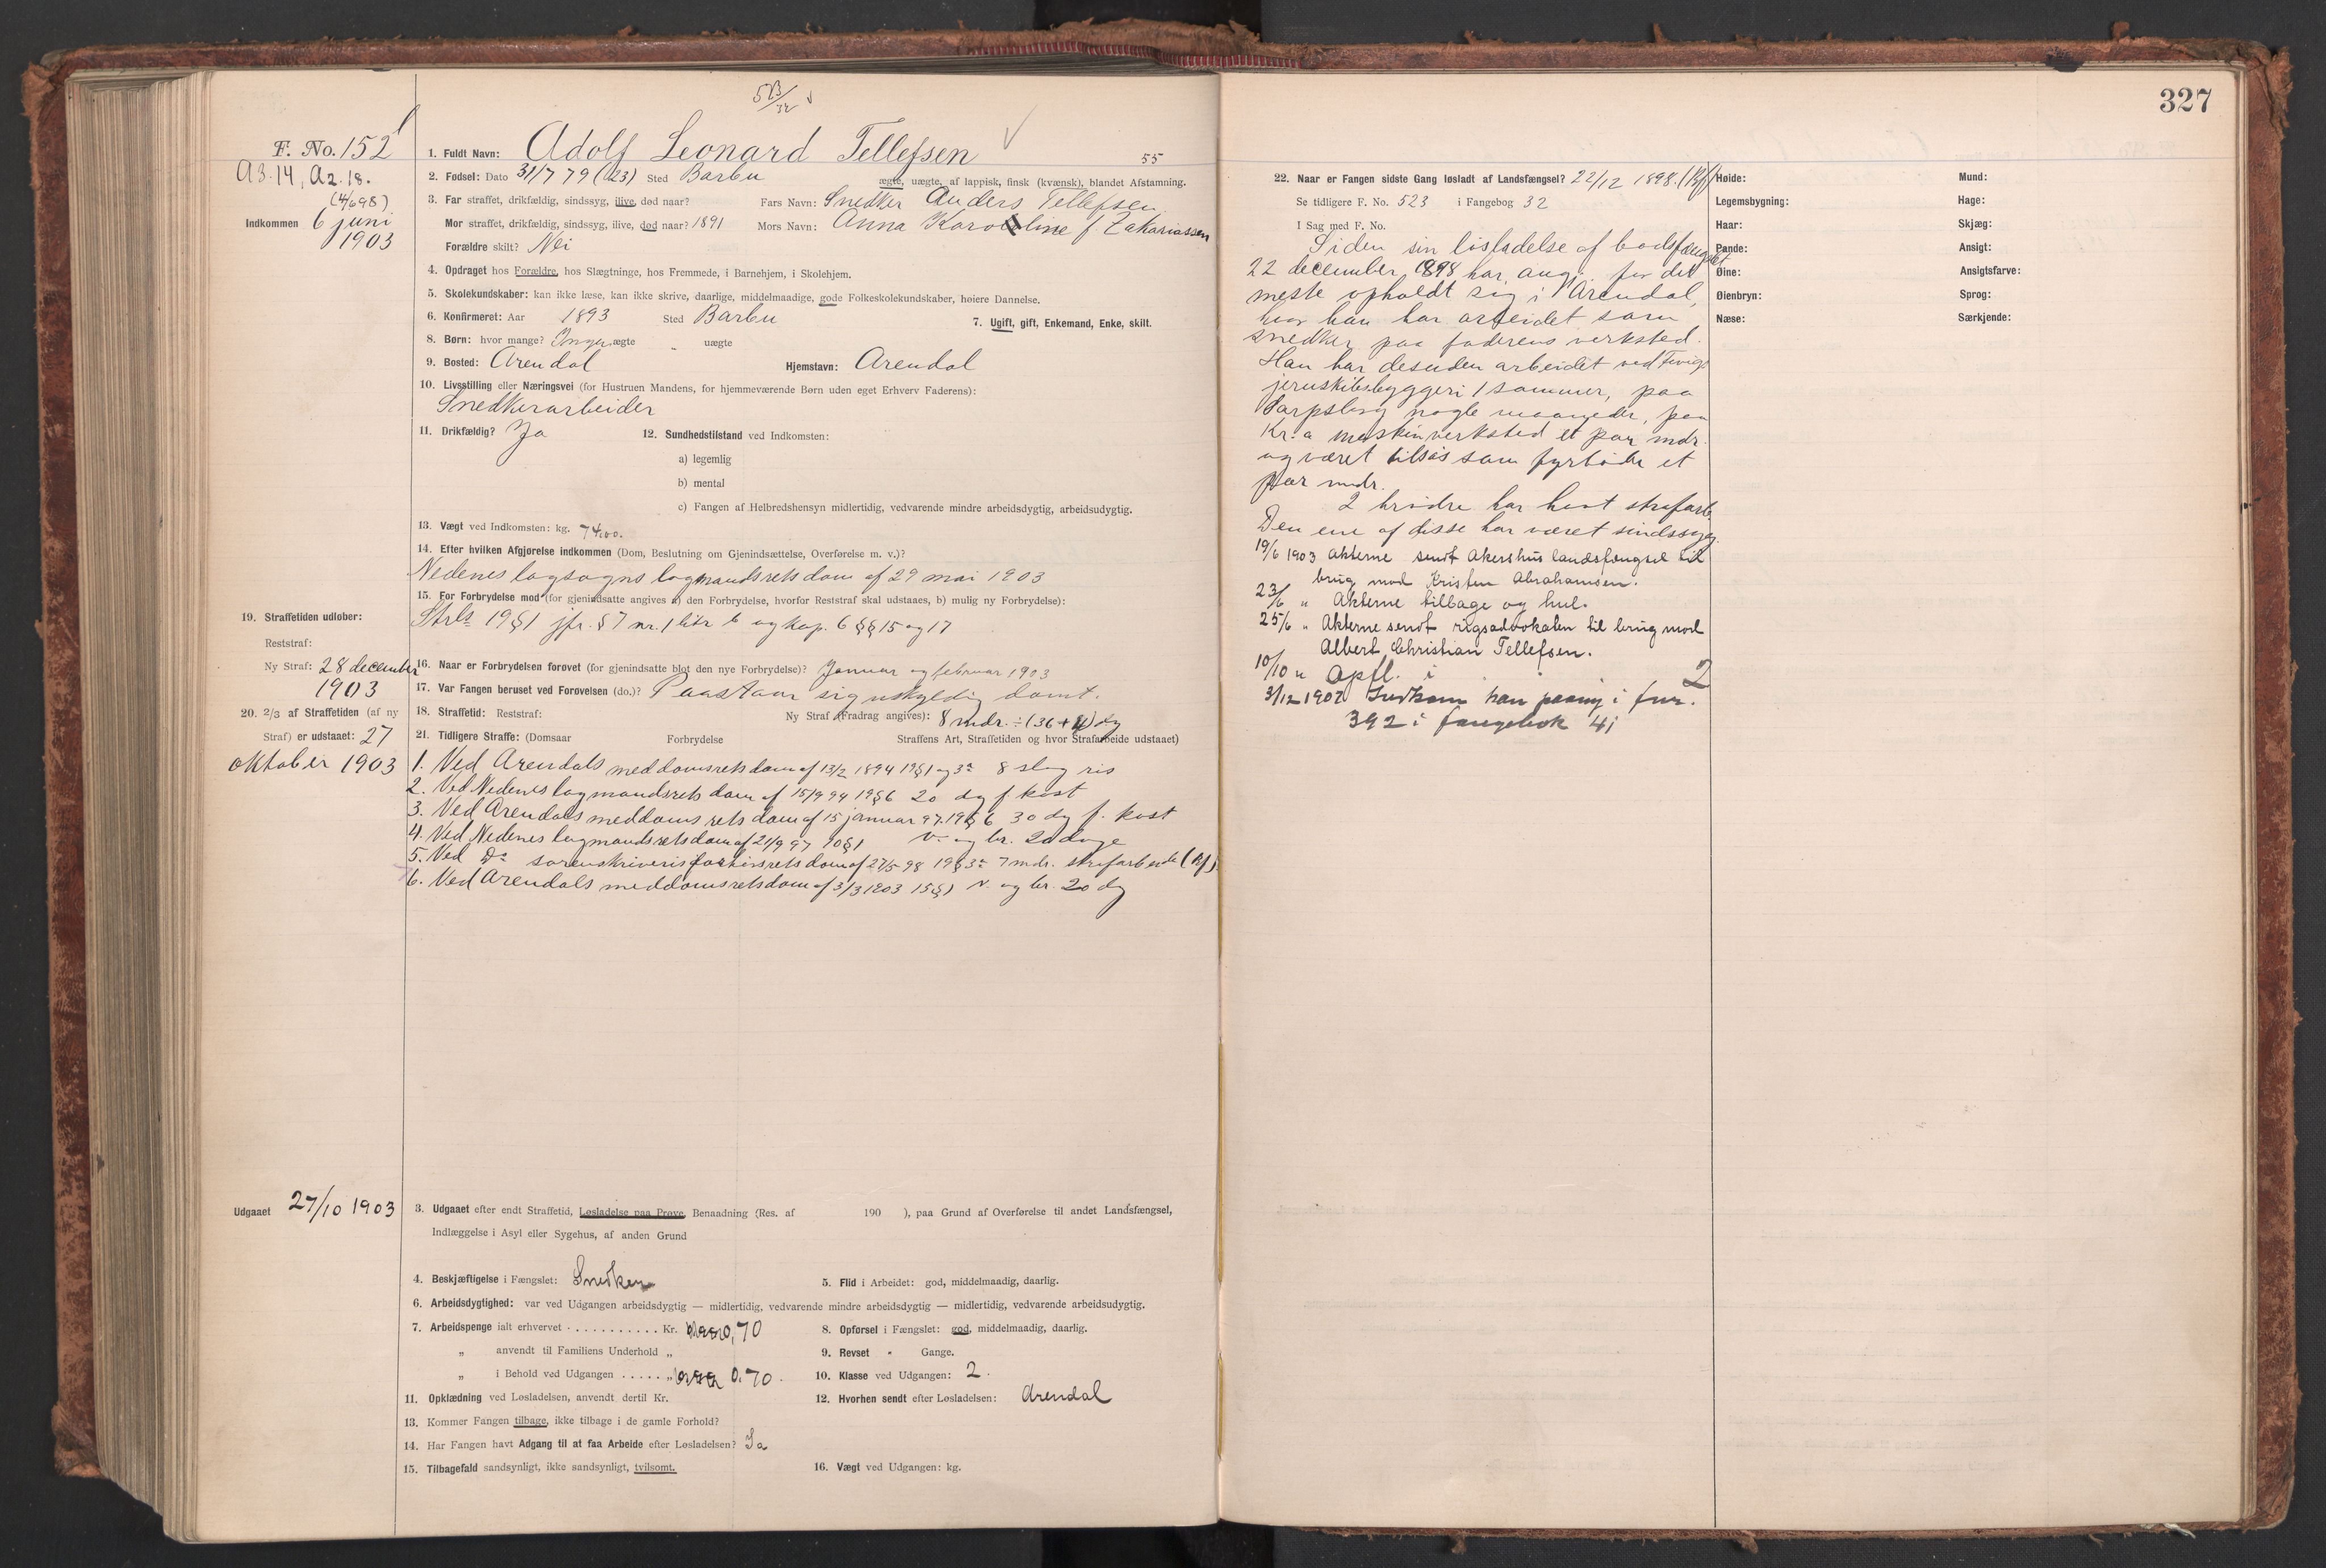 523/32
F. No. 152
A3.14, A2.18.
(4/698)
Indkommen 6 juni
1903
1. Fuldt Navn: Adolf Leonard Tellefsen
55
2. Fødsel: Dato 31/7 79 (023) Sted Barbu ægte, uægte, af lappisk, finsk (kvænsk), blandet Afstamning.
3. Far straffet, drikfældig, sindssyg, ilive, død naar? Fars Navn: Snedker Anders Tellefsen
Mor straffet, drikfældig, sindssyg, ilive, død naar? 1891 Mors Navn: Anna Karoline f. Zakariassen
Forældre skilt? Nei
4. Opdraget hos Forældre, hos Slægtninge, hos Fremmede, i Barnehjem, i Skolehjem.
5. Skolekundskaber: kan ikke læse, kan ikke skrive, daarlige, middelmaadige, gode Folkeskolekundskaber, høiere Dannelse.
6. Konfirmeret: Aar 1893 Sted Barbu 7. Ugift, gift, Enkemand, Enke, skilt.
8. Børn: hvor mange? Ingen ægte „ uægte
9. Bosted: Arendal Hjemstavn: Arendal
10. Livsstilling eller Næringsvei (for Hustruen Mandens, for hjemmeværende Børn uden eget Erhverv Faderens):
Snedkerarbeider
11. Drikfældig? Ja 12. Sundhedstilstand ved Indkomsten:
a) legemlig
b) mental
c) Fangen af Helbredshensyn midlertidig, vedvarende mindre arbeidsdygtig, arbeidsudygtig.
13. Vægt ved Indkomsten: kg. 74,00.
14. Efter hvilken Afgjørelse indkommen (Dom, Beslutning om Gjenindsættelse, Overførelse m. v.)?
Nedenes lagsogns lagmandsrets dom af 29 mai 1903
15. For Forbrydelse mod (for gjenindsatte angives a) den Forbrydelse, hvorfor Reststraf skal udstaaes, b) mulig ny Forbrydelse):
Strl 19 § 1 jfr. § 7 nr. 1 litr b og kap. 6 §§ 15 og 17
19. Straffetiden udløber:
Reststraf:
Ny Straf: 28 december
1903
16. Naar er Forbrydelsen forøvet (for gjenindsatte blot den nye Forbrydelse)? Januar og februar 1903
17. Var Fangen beruset ved Forøvelsen (do.)? Paastaar sig uskyldig dømt.
20. 2/3 af Straffetiden (af ny
Straf) er udstaaet: 27
oktober 1903
18. Straffetid: Reststraf: Ny Straf (Fradrag angives): 8 mdr. ÷ (36 + 4) dg
21. Tidligere Straffe: (Domsaar Forbrydelse Straffens Art, Straffetiden og hvor Strafarbeide udstaaet)
1. Ved Arendals meddomsrets dom af 13/2 1894 19 § 1 og 3 8 slag ris
2. Ved Nedenes lagmandsrets dom af 15/9 94 19 § 6 20 dg f. kost
3. Ved Arendals meddomsrets dom af 15 januar 97. 19 § 6 30 dg f. kost
4. Ved Nedenes lagmandsrets dom af 21/9 97 10 § 1 v. og br. 20 dage
5. Ved Do sorenskriveris forhørsrets dom af 27/5 98 19 § 3 7 mdr. strafarbeide (Bf)
6. Ved Arendals meddomsrets dom af 3/3 1903 15 § 1 v. og br. 20 dg
Udgaaet 27/10 1903
3. Udgaaet efter endt Straffetid, Løsladelse paa Prøve, Benaadning (Res. af 190 ), paa Grund af Overførelse til andet Landsfængsel,
Indlæggelse i Asyl eller Sygehus, af anden Grund
4. Beskjæftigelse i Fængslet: Snedker 5. Flid i Arbeidet: god, middelmaadig, daarlig.
6. Arbeidsdygtighed: var ved Udgangen arbeidsdygtig — midlertidig, vedvarende mindre arbeidsdygtig — midlertidig, vedvarende arbeidsudygtig.
7. Arbeidspenge ialt erhvervet . . . . . . . . . . . Kr. 0,70 8. Opførsel i Fængslet: god, middelmaadig, daarlig.
„ anvendt til Familiens Underhold „ 9. Revset - Gange.
„ i Behold ved Udgangen . . . . . „ 0.70. 10. Klasse ved Udgangen: 2.
11. Opklædning ved Løsladelsen, anvendt dertil Kr. 12. Hvorhen sendt efter Løsladelsen: Arendal
13. Kommer Fangen tilbage, ikke tilbage i de gamle Forhold?
14. Har Fangen havt Adgang til at faa Arbeide efter Løsladelsen? Ja
15. Tilbagefald sandsynligt, ikke sandsynligt, tvilsomt. 16. Vægt ved Udgangen: kg.
327
22. Naar er Fangen sidste Gang løsladt af Landsfængsel? 22/12 1898. (Bf)
Se tidligere F. No. 523 i Fangebog 32
I Sag med F. No.
Siden sin løsladelse af bodsfængslet
22 december 1898 har ang. for det
meste opholdt sig i Arendal,
hvor han har arbeidet som
snedker paa faderens verksted.
Han har desuden arbeidet ved Fevigs
jernskibsbyggeri 1 sommer, paa
Sarpsborg nogle maaneder, paa
Kr.a mekskinverksted et par mdr.
og været tilsøs som fyrbøder et
par mdr.
2 brødre har havt strafarb.
Den ene af disse har været sindssyg.
19/6 1903 Akterne sendt Akershus landsfængsel til
brug mod Kristen Abrahamsen.
23/6 „ Akterne tilbage og hul.
25/6 „ Akterne sendt rigsadvokaten til brug mod
Albert Christian Tellefsen.
10/10 „ Opfl. i 2
3/12 1907 Indkom han paany i fnr.
392 i fangebok 41
Høide:
Legemsbygning:
Haar:
Pande:
Øine:
Øienbryn:
Næse:
Mund:
Hage:
Skjæg:
Ansigt:
Ansigtsfarve:
Sprog:
Særkjende: